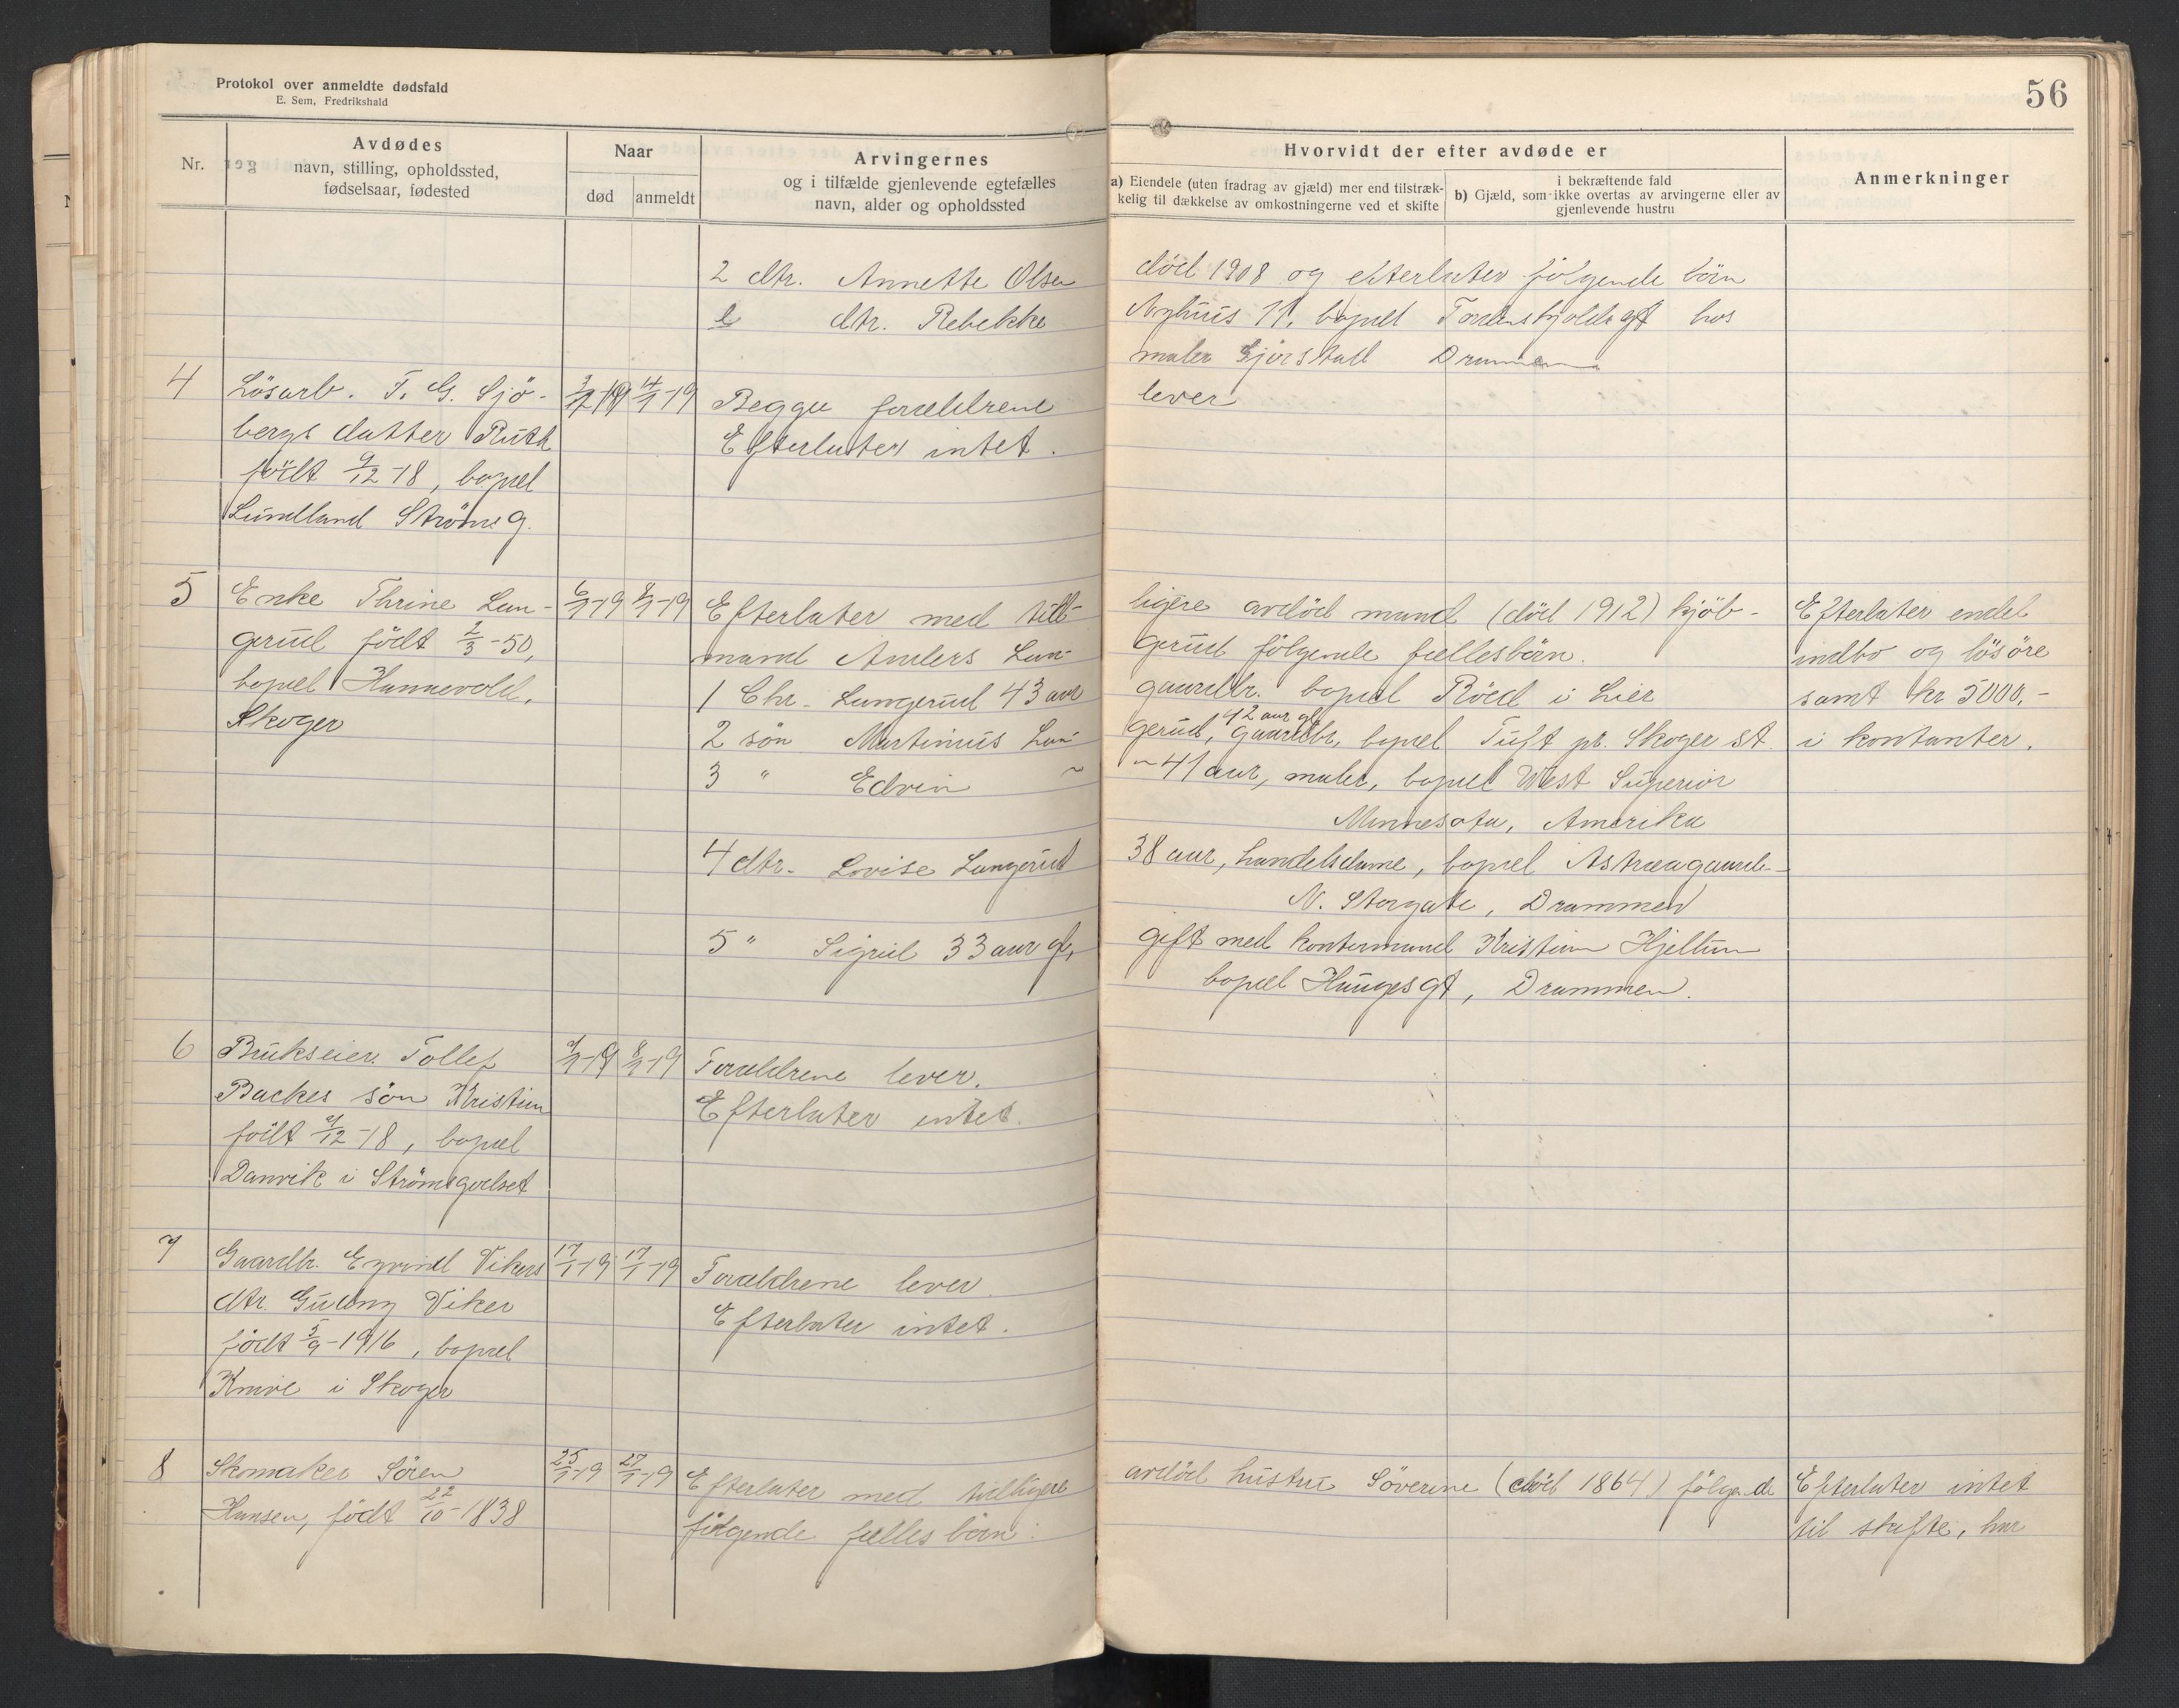 Protokol over anmeldte dødsfald
E. Sem, Fredrikshald
56
Nr.
Avdødes
navn, stilling, opholdssted,
fødselsaar, fødested
Naar
død anmeldt
Arvingernes
og i tilfælde gjenlevende egtefælles
navn, alder og opholdssted
Hvorvidt der efter avdøde er
a) Eiendele (uten fradrag av gjæld) mer end tilstræk-
kelig til dækkelse av omkostningerne ved et skifte
i bekræftende fald
b) Gjæld, som ikke overtas av arvingerne eller av
gjenlevende hustru
Anmerkninger
2 dtr. Annette Olsen død 1908 og efterlater følgende børn
dtr. Rebekke Nyhuus 11, bopæl Tordenskjoldsgt hos
maler Drammen
4 Løsarb. T. G. Sjö- 3/1-19 14/1-19 Begge forældrene lever
bergs datter Ruth Efterlater intet.
født 9/12-18, bopæl
Lundland Strömsg.
5 Enke Thrine Lan- 6/1-19 8/1-19 Efterlater med tid- ligere avdöd mand (död 1912) kjöb- Efterlater endel
gerud født 2/3-50, mand Anders Lan- gerud fölgende fællesbörn. indbo og lösöre
bopæl Hannevold, 1 Chr. Langerud 43 aar gaardbr. bopæl Röed i Lier samt kr 5000,-
Skoger 2 sön Martinius Lan- gerud, 42 aar gl, gaardbr, bopæl Tuft pr. Skoger st. i kontanter.
3 " Edvin ~ ~ 41 aar, maler, bopæl West Superior
Minnesota, Amerika
4 dtr. Lovise Langerud 38 aar, handelsdame, bopæl Astræagaarde-
N. Storgate, Drammen
5 " Sigrid 33 aar gl, gift med kontormand Kristian Hjellum
bopæl Haugesgt, Drammen.
6 Brukseier Tollef 7/1-19 8/1-19 Forældrene lever.
Backes sön Kristian Efterlater intet.
født 7/12-18, bopæl
Danvik i Strömsgodset
7 Gaardbr. Eyvind Vikers 17/1-19 17/1-19 Forældrene lever.
dtr. Gudny Viker Efterlater intet.
født 5/9-1916, bopæl
Knive i Skoger
8 Skomaker Sören 25/1-19 27/1-19 Efterlater med tidligere avdöd hustru Söverine (död 1864) fölgende Efterlater intet
Hansen, födt 22/10-1838 fölgende fælles börn: til skifte, har